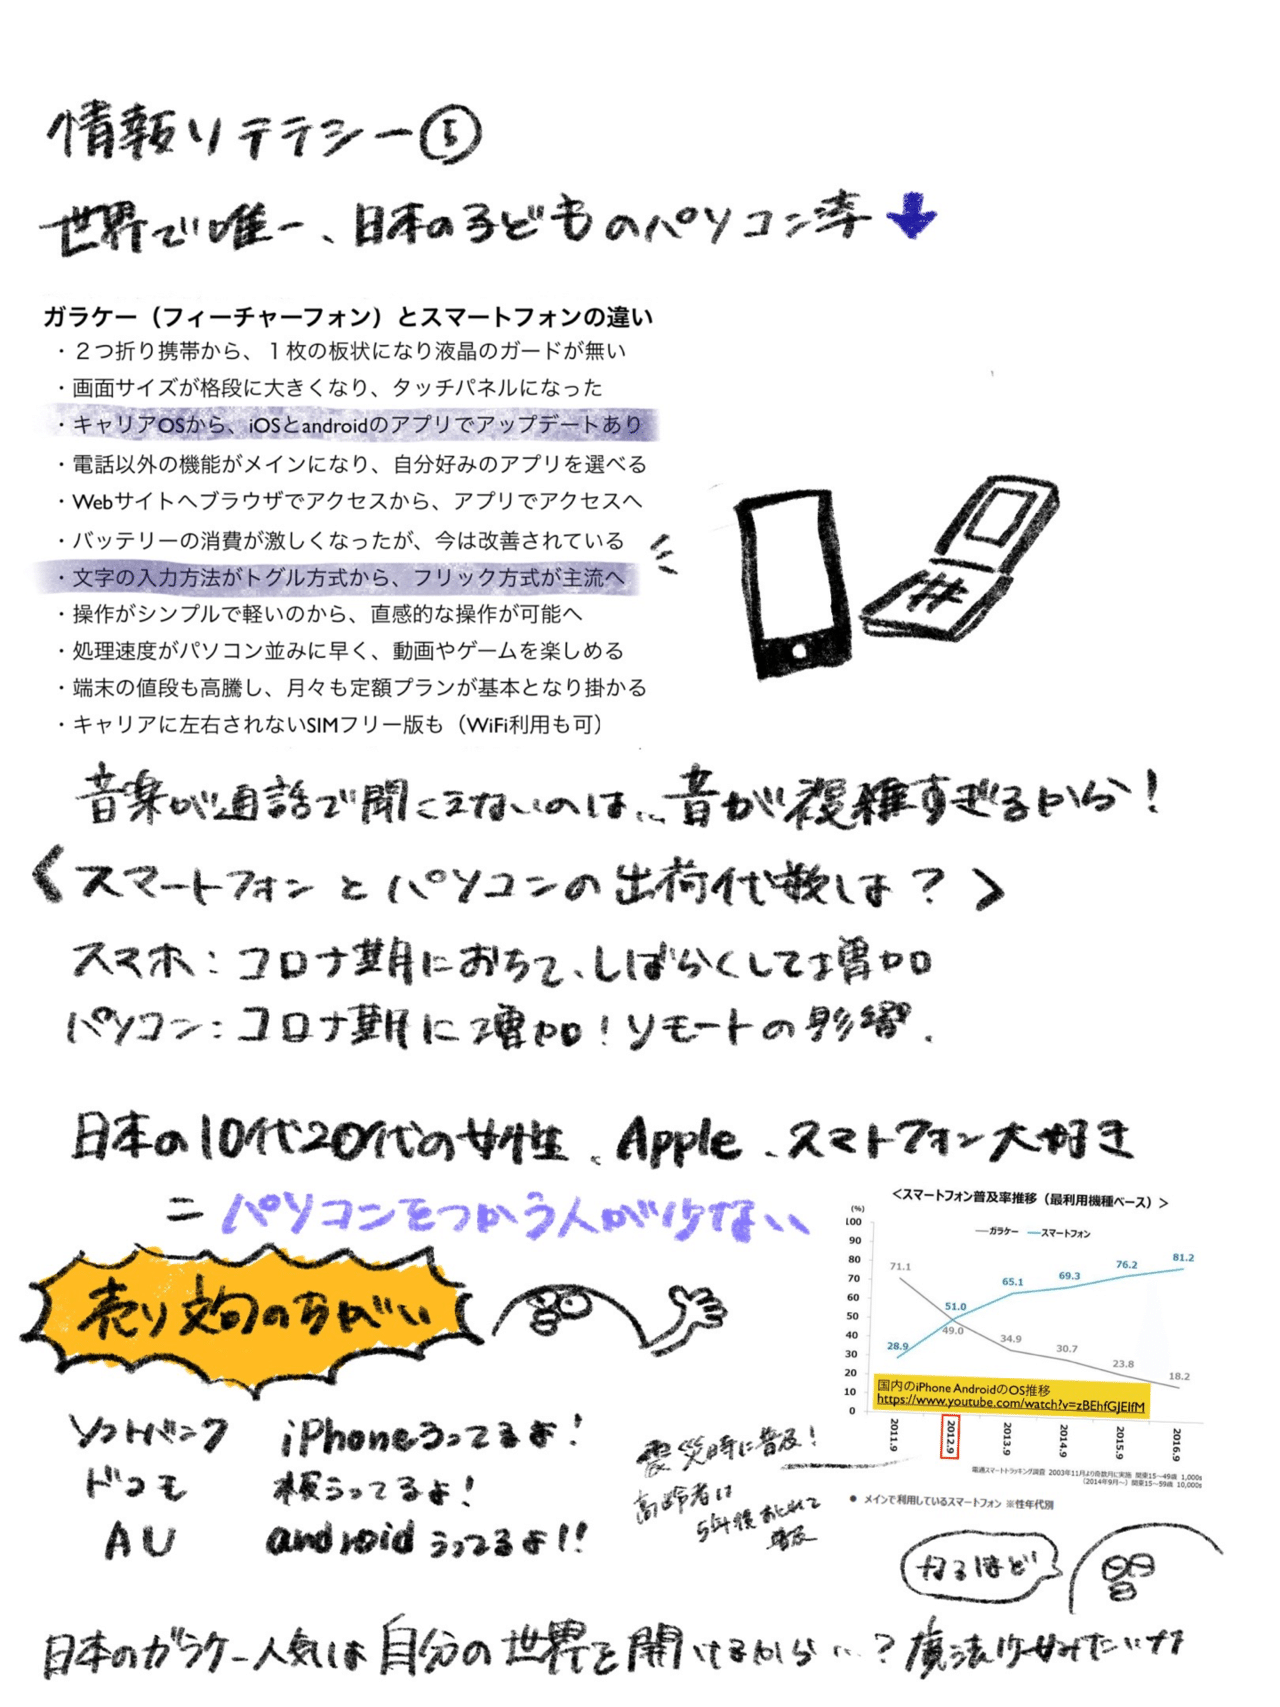 情報リテラシー⑤
世界で唯一、日本の子どものパソコン率
ガラケー（フィーチャーフォン）とスマートフォンの違い
・２つ折り携帯から、１枚の板状になり液晶のガードが無い
・画面サイズが格段に大きくなり、タッチパネルになった
・キャリアOSから、iOSとandroidのアプリでアップデートあり
・電話以外の機能がメインになり、自分好みのアプリを選べる
・Webサイトへブラウザでアクセスから、アプリでアクセスへ
・バッテリーの消費が激しくなったが、今は改善されている
・文字の入力方法がトグル方式から、フリック方式が主流へ
・操作がシンプルで軽いのから、直感的な操作が可能へ
・処理速度がパソコン並みに早く、動画やゲームを楽しめる
・端末の値段も高騰し、月々も定額プランが基本となり掛かる
・キャリアに左右されないSIMフリー版も（WiFi利用も可）
音楽が通話で聞こえないのは…音が複雑すぎるから！
〈スマートフォンとパソコンの出荷代数は？〉
スマホ：コロナ期におちて、しばらくして増加
パソコン：コロナ期に増加！リモートの影響.
日本の10代20代の女性、Apple、スマトフォン大好き
＝パソコンをつかう人が少ない
売り文句のちがい
ソフトバンク iPhoneうってるよ！
ドコモ 板うってるよ！
AU androidうってるよ!!
震災時に普及！
高齢者は
5年後おくれて
普及
<スマートフォン普及率推移（最利用機種ベース）>
(%)
ガラケー スマートフォン
100
90
80
70
60
50
40
30
20
10
0
71.1 49.0 34.9 30.7 23.8 18.2
28.9 51.0 65.1 69.3 76.2 81.2
国内のiPhone AndroidのOS推移
https://www.youtube.com/watch?v=zBEhfGJEIfM
2011.9 2012.9 2013.9 2014.9 2015.9 2016.9
電通スマートトラッキング調査 2003年11月より奇数月に実施 関東15～49歳 1,000s
（2014年9月～）関東15～59歳 10,000s
● メインで利用しているスマートフォン ※性年代別
なるほど
日本のガラケー人気は自分の世界を開けるから…？魔法少女みたいな